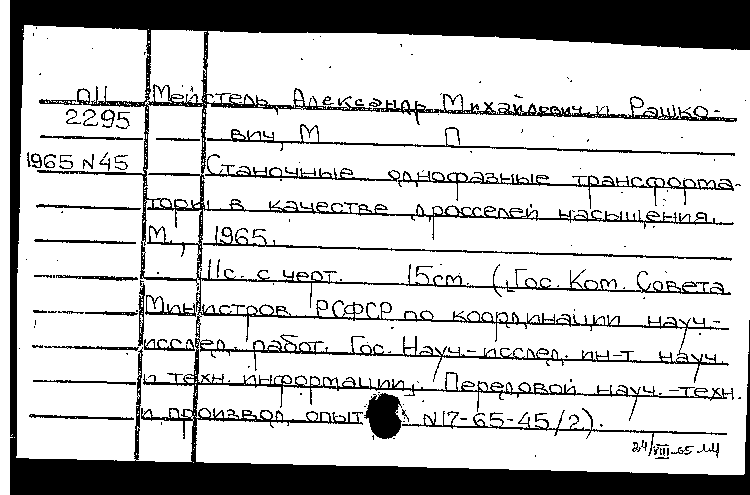 П11 Мейстель, Александр Михайлович и Рашко-
2295 вич, М П
1965 N45 Станочные однофазные трансформа-
торы в качестве дросселей насыщения.
М., 1965.
11с. с черт. 15см. (Гос. Ком. Совета
Министров РСФСР по координации науч.-
исслед. работ. Гос. Науч.-исслед. ин-т науч.
и техн. информации. Передовой науч.-техн.
и произвол. опыт N17-65-45/2).
24/VIII-65